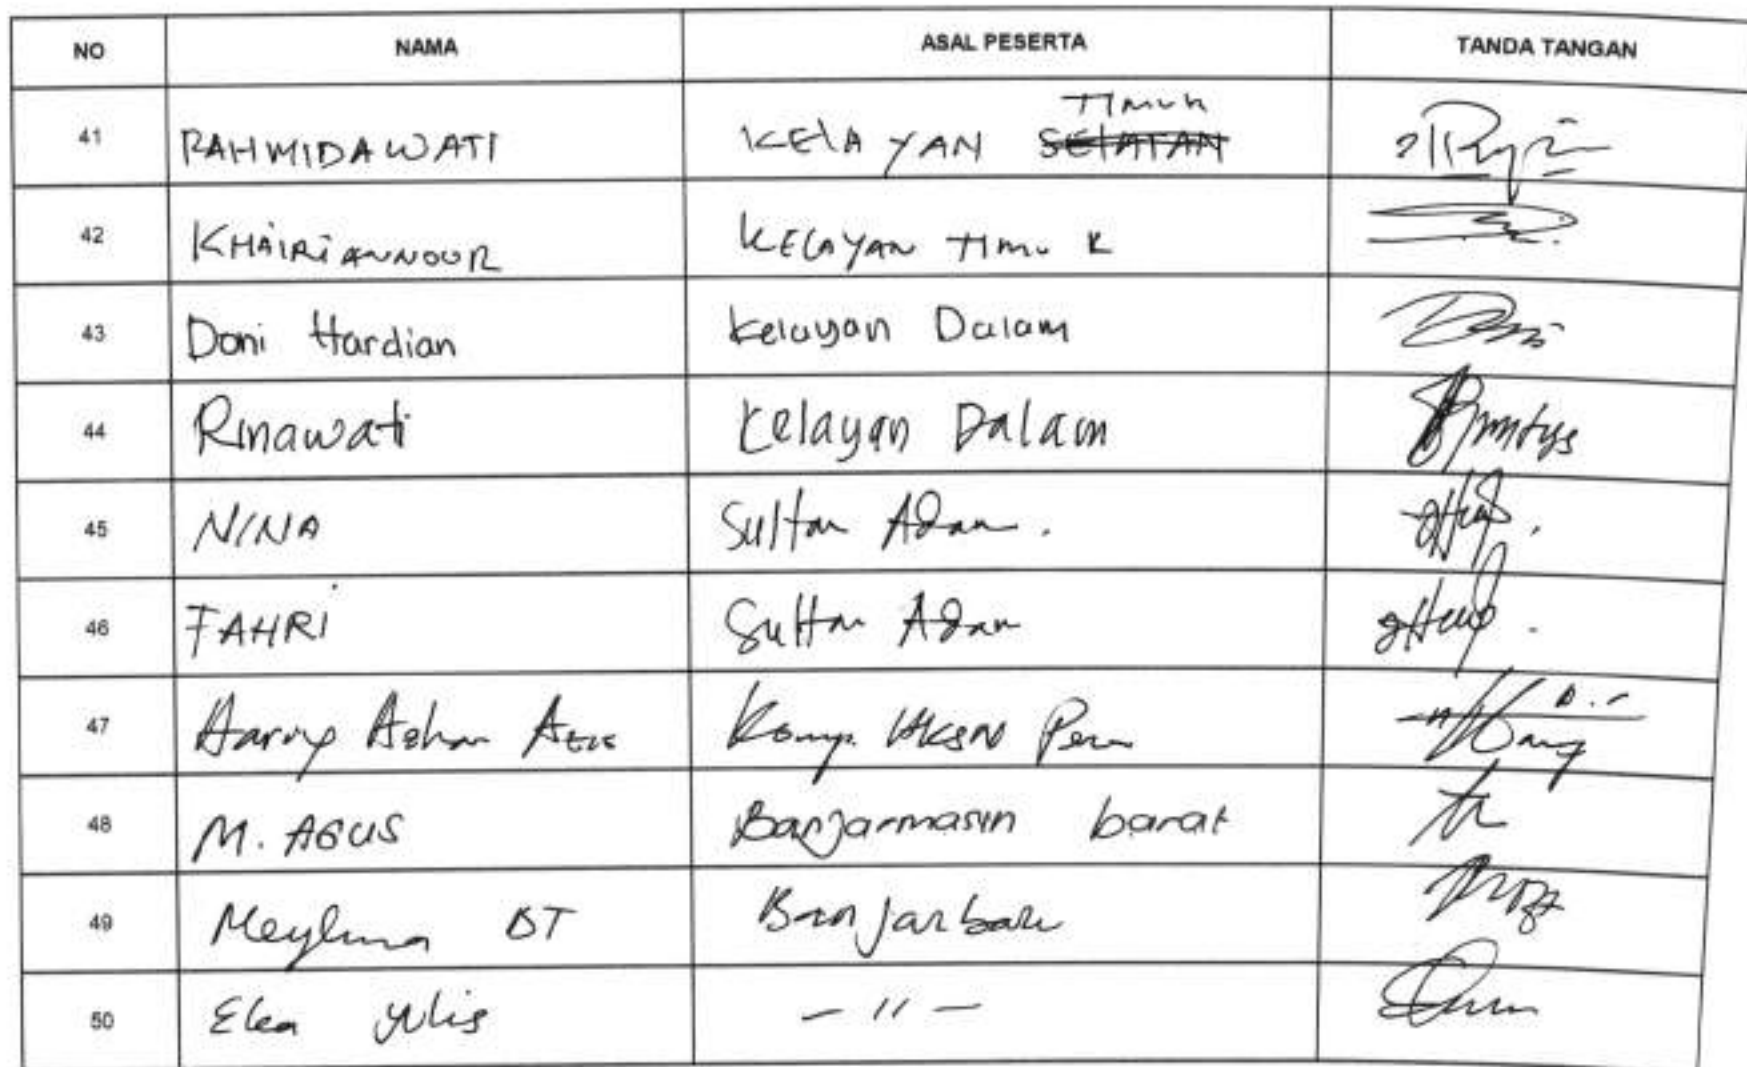 NO NAMA ASAL PESERTA TANDA TANGAN
41 RAHMIDAWATI KELAYAN TIMUR SELATAN
42 KHAIRIANNOUR KELAYAN TIMUR
43 Doni Hardian Kelayan Dalam
44 Rinawati Kelayan Dalam
45 NINA Sultan Adam.
46 FAHRI Sultan Adam
47 Komp. HKSN
48 M. AGUS Banjarmasin barat
49 Banjarbaru
50 yulis - 11 -